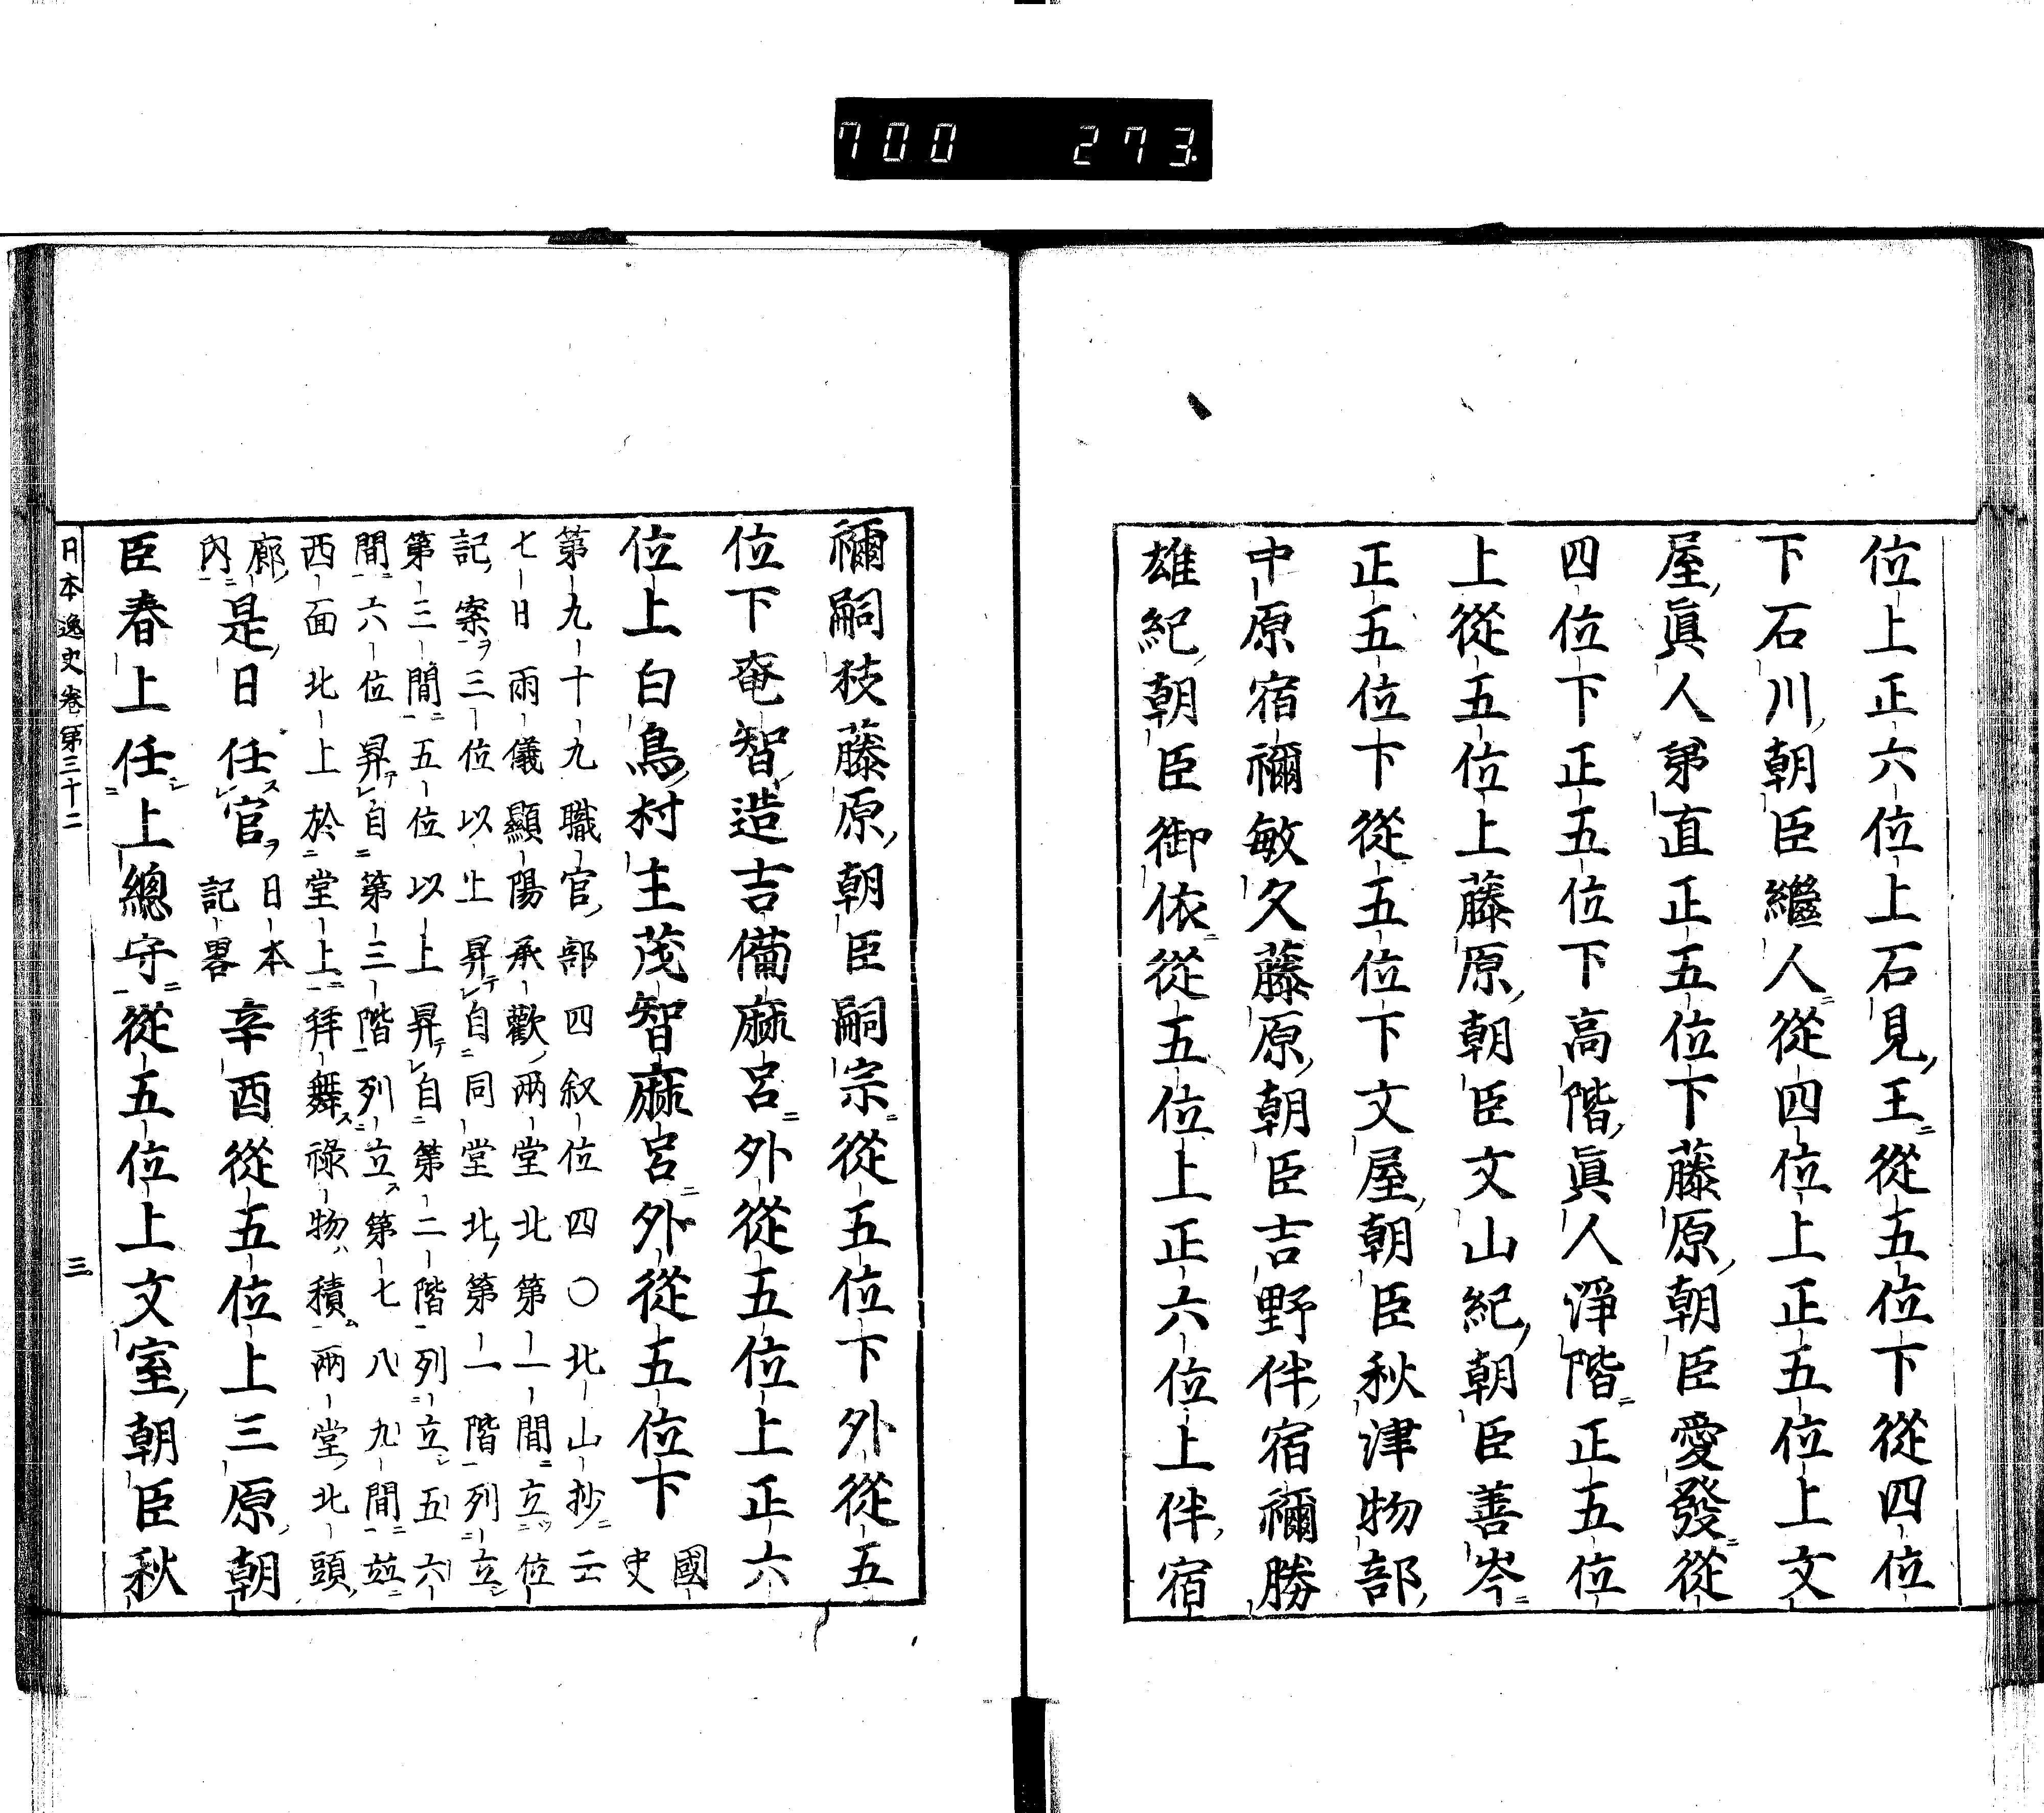 700 273
位上正六位上石見王從五位下從四位
下石川朝臣繼人從四位上正五位上文
屋眞人弟直正五位下藤原朝臣愛發從
四位下正五位下高階眞人淨階正五位
上從五位上藤原朝臣文山紀朝臣善岑
正五位下從五位下文屋朝臣秋津物部
中原宿禰敏久藤原朝臣吉野伴宿禰勝
雄紀朝臣御依從五位上正六位上伴宿
禰嗣枝藤原朝臣嗣宗從五位下外從五
位下奄智造吉備麻呂外從五位上正六
位上白鳥村主茂智麻呂外從五位下國史
第九十九職官部四叙位四〇北山抄二云
七日雨儀顯陽承歡兩堂北第一間立位
記案三位以上昇自同堂北第一階列立
第三間五位以上昇自第二階列立五六
間六位昇自第三階列立第七八九間竝
西面北上於堂上拜舞祿物積兩堂北頭
廊內是日任官日本記畧辛酉從五位上三原朝
臣春上任上總守從五位上文室朝臣秋
日本逸史卷第三十二 三